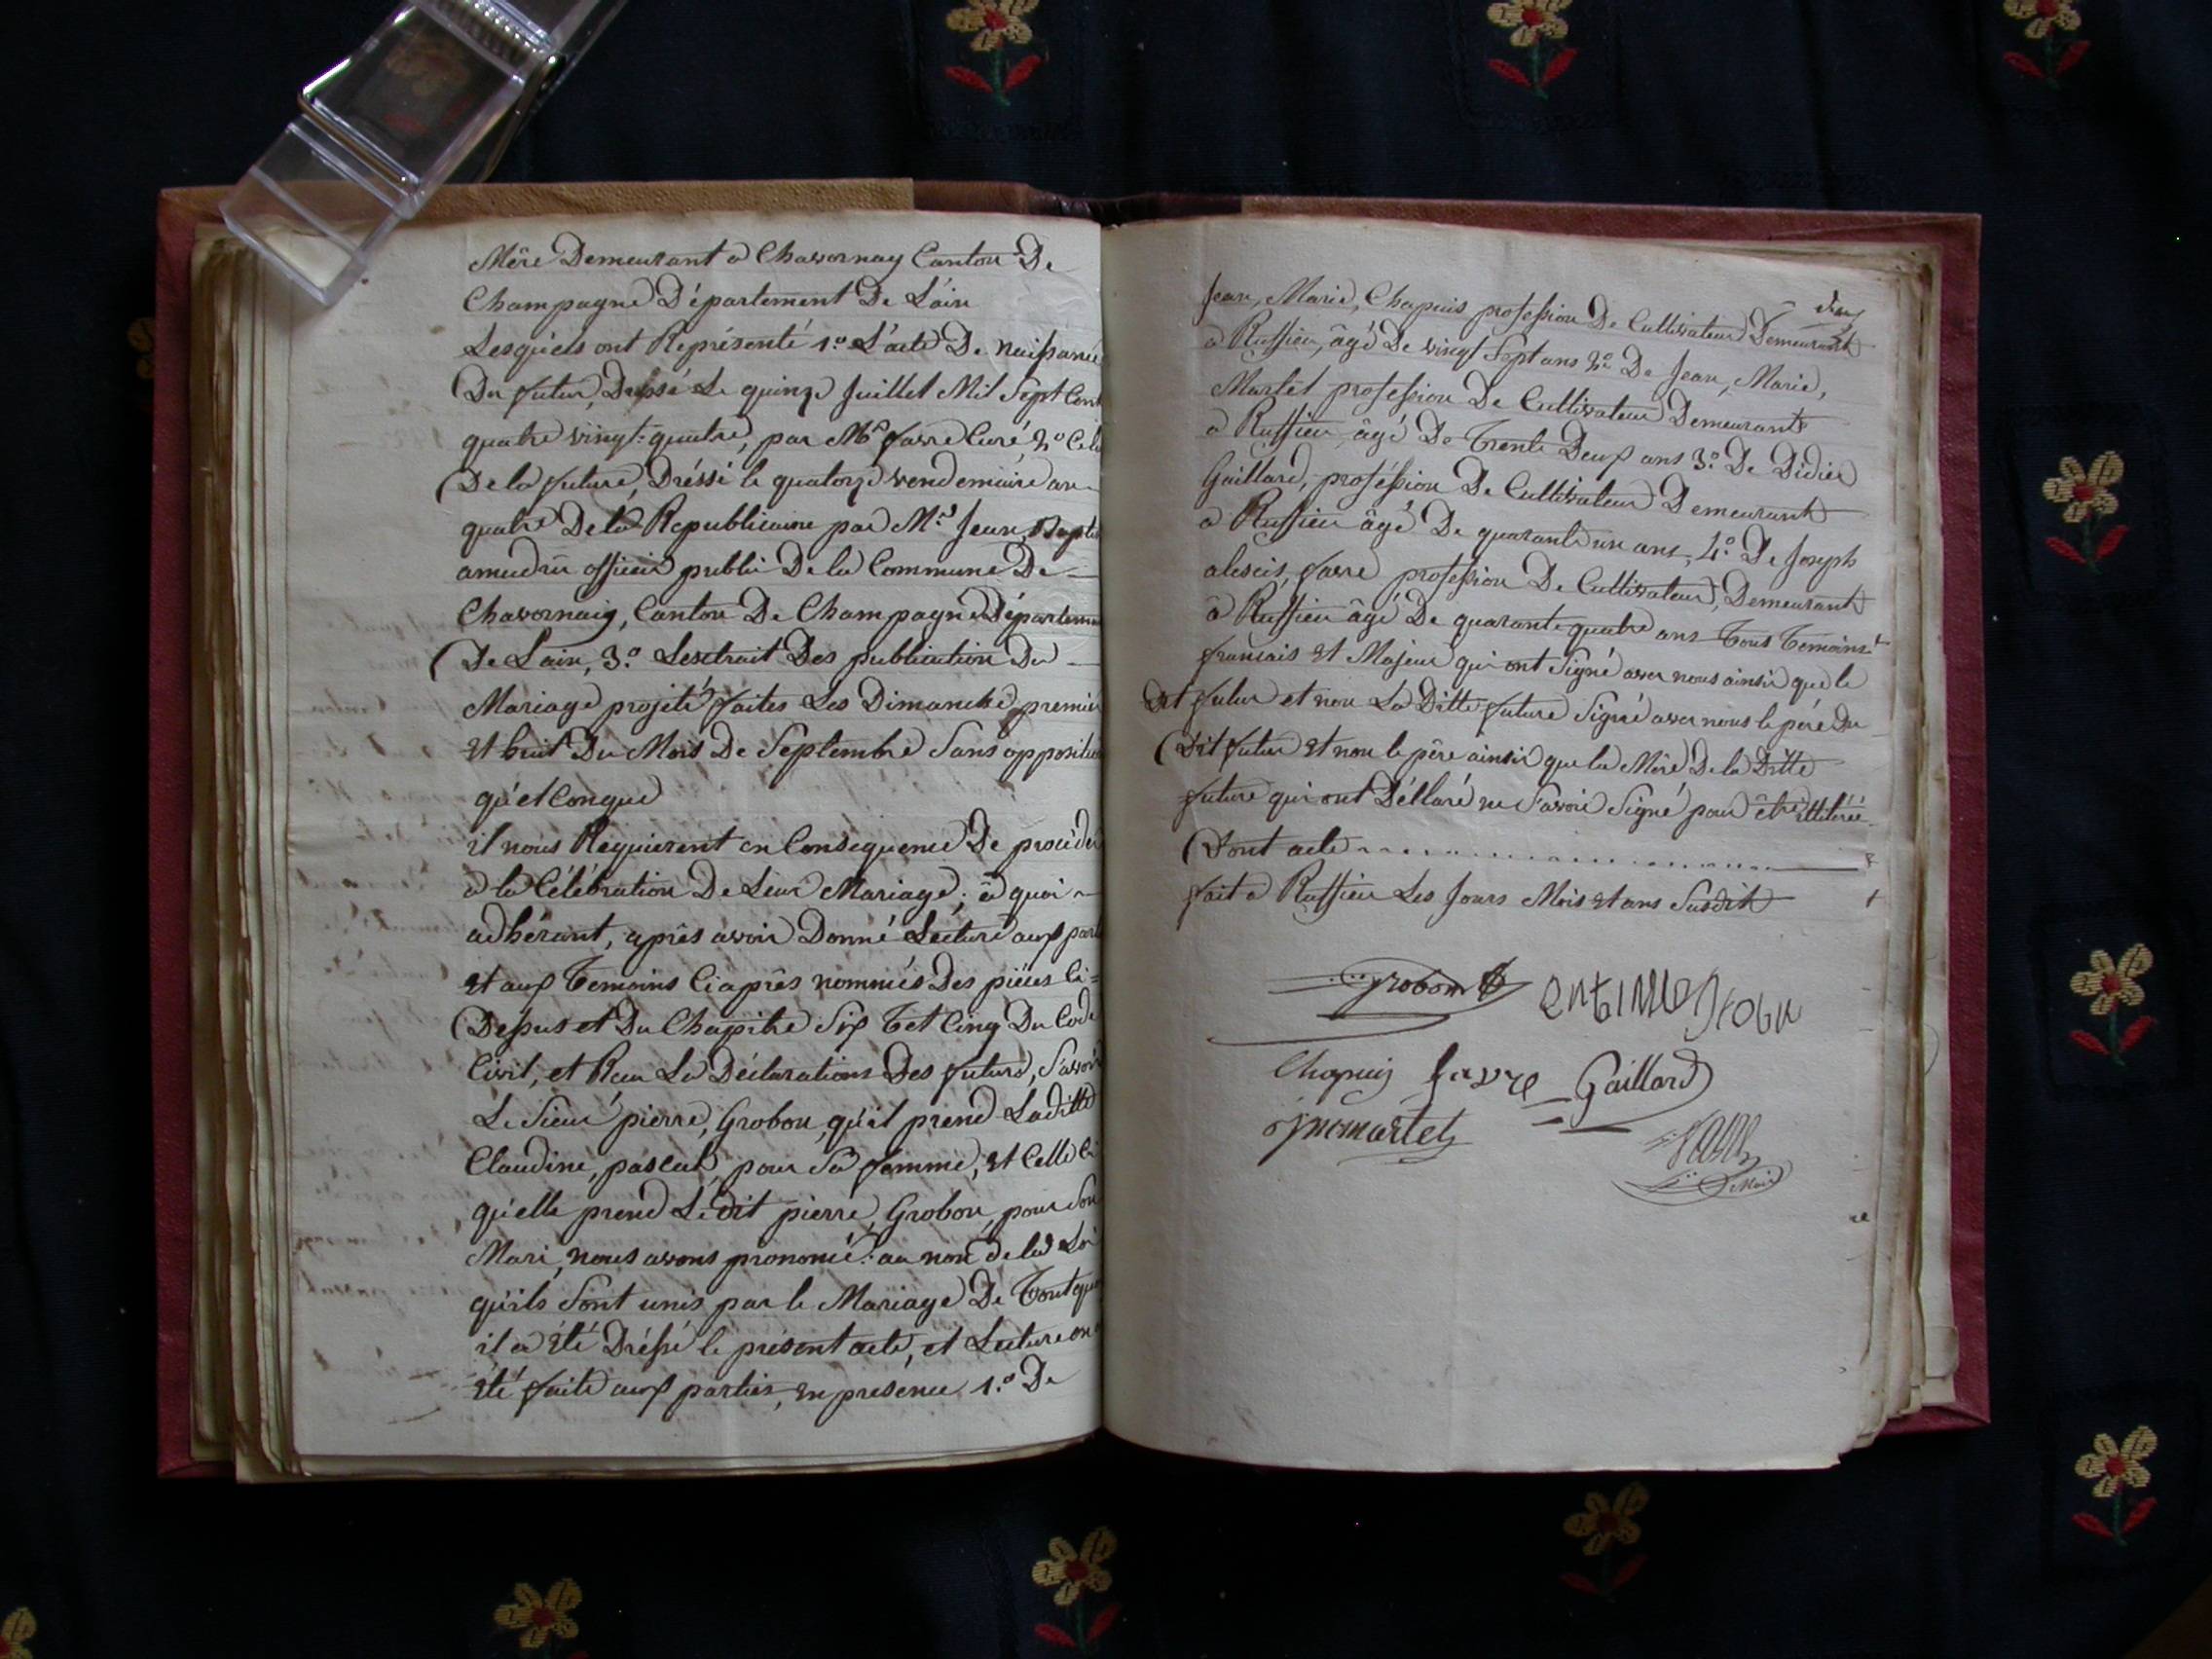 Mère Demeurant a Chavornay Canton De
Champagne Département De L'ain
Lesquels ont Représenté 1.º L'acte De naissance
Du futur, Dressé Le quinze Juillet Mil Sept Cent
quatre vingt-quatre, par Mr favre Curé, 2º Celui
De la future, Dréssé le quatorze vendemiaire an
quatre De la Republicaine par Mr. Jean, Baptis
officier public De la Commune De
Chavornaig, Canton De Champagne Départem
De Lain, 3.º Lesctrait Des publication Du
Mariage projeté faites Les Dimanche premier
Et huit Du Mois De Septembre Sans opposition
qu'elconque
il nous Requierent en Consequence De procéder
a la Célébration De Leur Mariage; â quoi
adhérant, après avoir Donné Lecture aux part
Et aux Temoins Ci après nommés Des pièces Ci=
Dessus et Du Chapitre Six Tet Cinq Du Code
Civil, et Recu La Déclarations Des futurs, S'avoir
Le Sieur pierre, Grobon, qu'il prend Laditte
Claudine, pascal, pour Sa femme, Et Celle Ci
qu'elle prend Le dit pierre, Grobon, pour Son
Mari, nous avons prononcé: au nom de la Loi
qu'ils Sont unis par le Mariage De Tout quoi
il a Eté Dréssé le présent acte, et Lecture en a
Eté faite aux parties, en présence 1.º De
Jean, Marie, Chapuis profession De Cultivateur Demeurant
a Ruffieu, âgé De vingt Sept ans 2.º De Jean, Marie,
Martel profession De Cultivateur Demeurant
a Ruffieu âgé De Trente Deux ans 3.º De Didier
Gaillard, proféssion De Cultivateur Demeurant
a Ruffieu âgé De quarante un ans, 4.º De Joseph
alescis, favre profession De Cultivateur, Demeurant
â Ruffieu âgé De quarante quatre ans Tous Temoins
francais Et Majeur qui ont Signé avec nous ainsi que le
Dit futur et non La Ditte future Signé avec nous le père Du
Dit futur Et non le père ainsi que la Mère De la Ditte
future qui ont Déclaré ne S'avoir Signé pour être illitérée
Dont acte
fait a Ruffieu Les Jours Mois Et ans Susdit
Grobon
Chapuis favre Gaillard
jmmartel
Maire